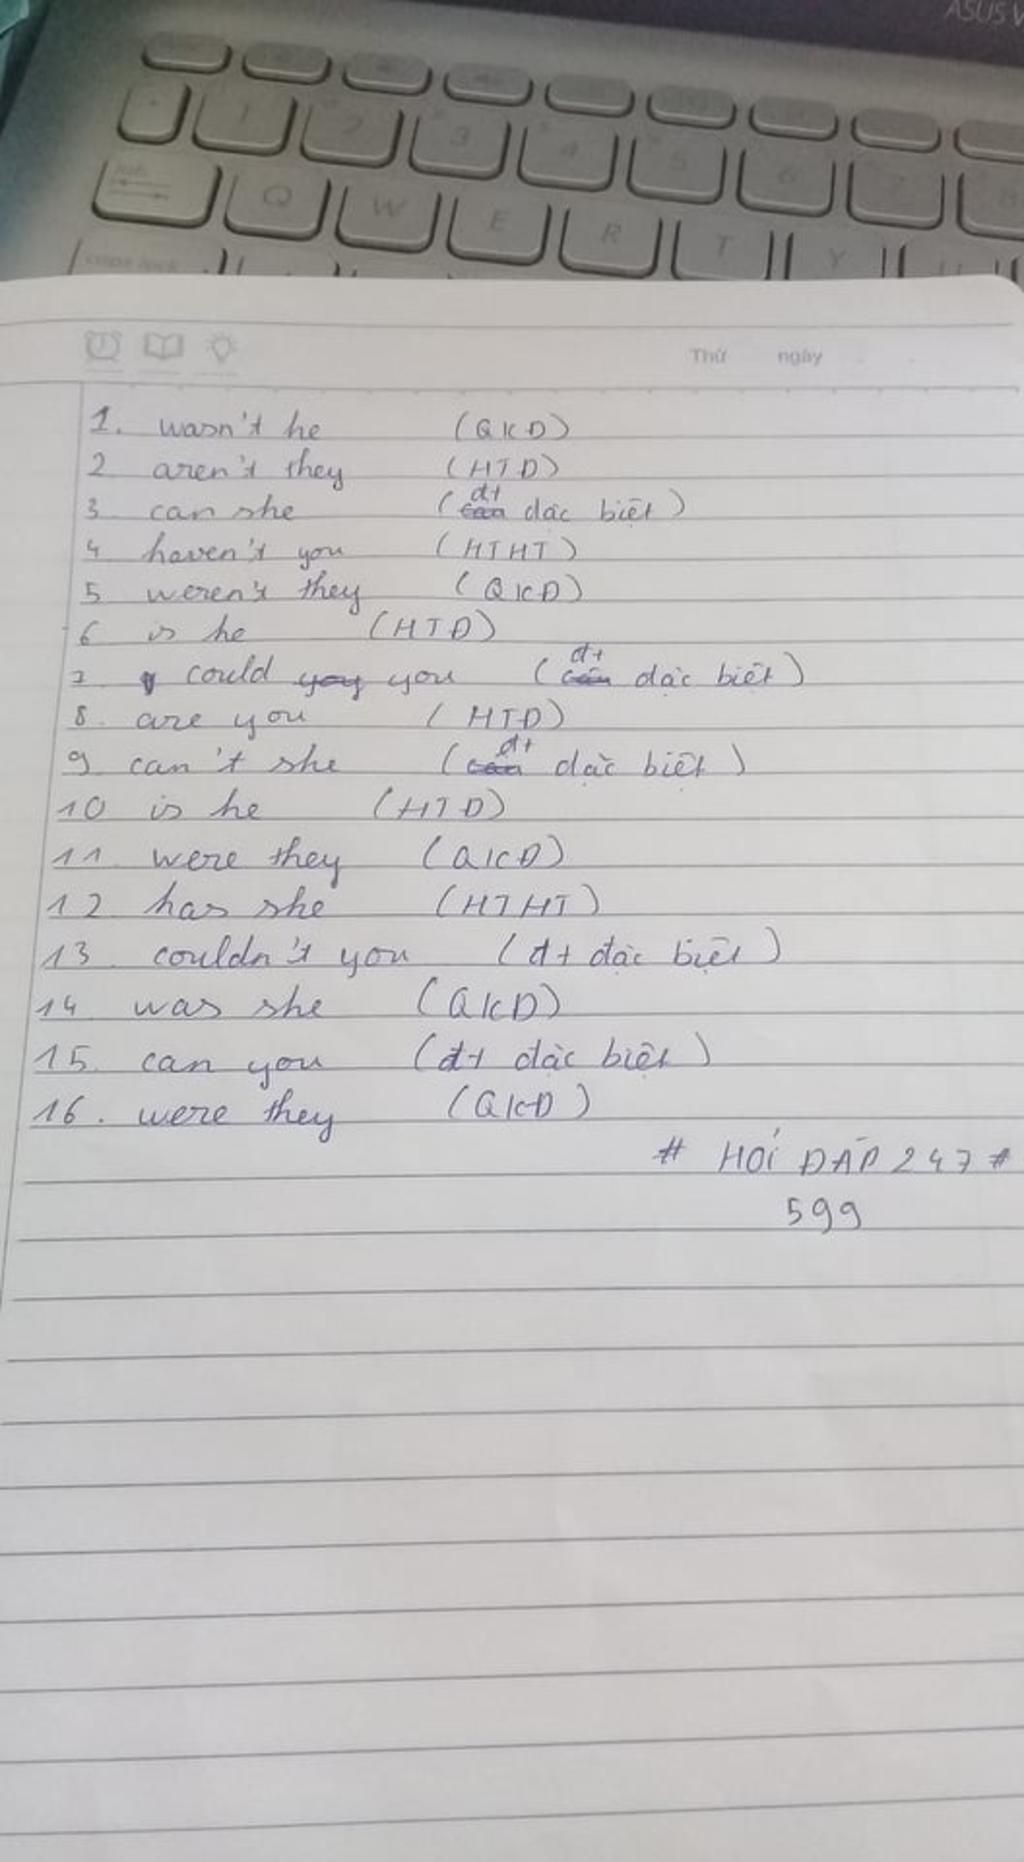 ASUS V
1 2 3 4 5 6 7 8
Q W E R T Y
caps lock
Thứ ngày
1. wasn't he (QKD)
2 aren't they (HTD)
3 can she (đt đặc biệt)
4 haven't you (HTHT)
5 weren't they (QKD)
6 is he (HTD)
7 could you (đt đặc biệt)
8. are you (HTD)
9 can't she (đt đặc biệt)
10 is he (HTD)
11 were they (QKD)
12 has she (HTHT)
13. couldn't you (đt đặc biệt)
14 was she (QKD)
15. can you (đt đặc biệt)
16. were they (QKD)
# HỎI ĐÁP 247 #
599